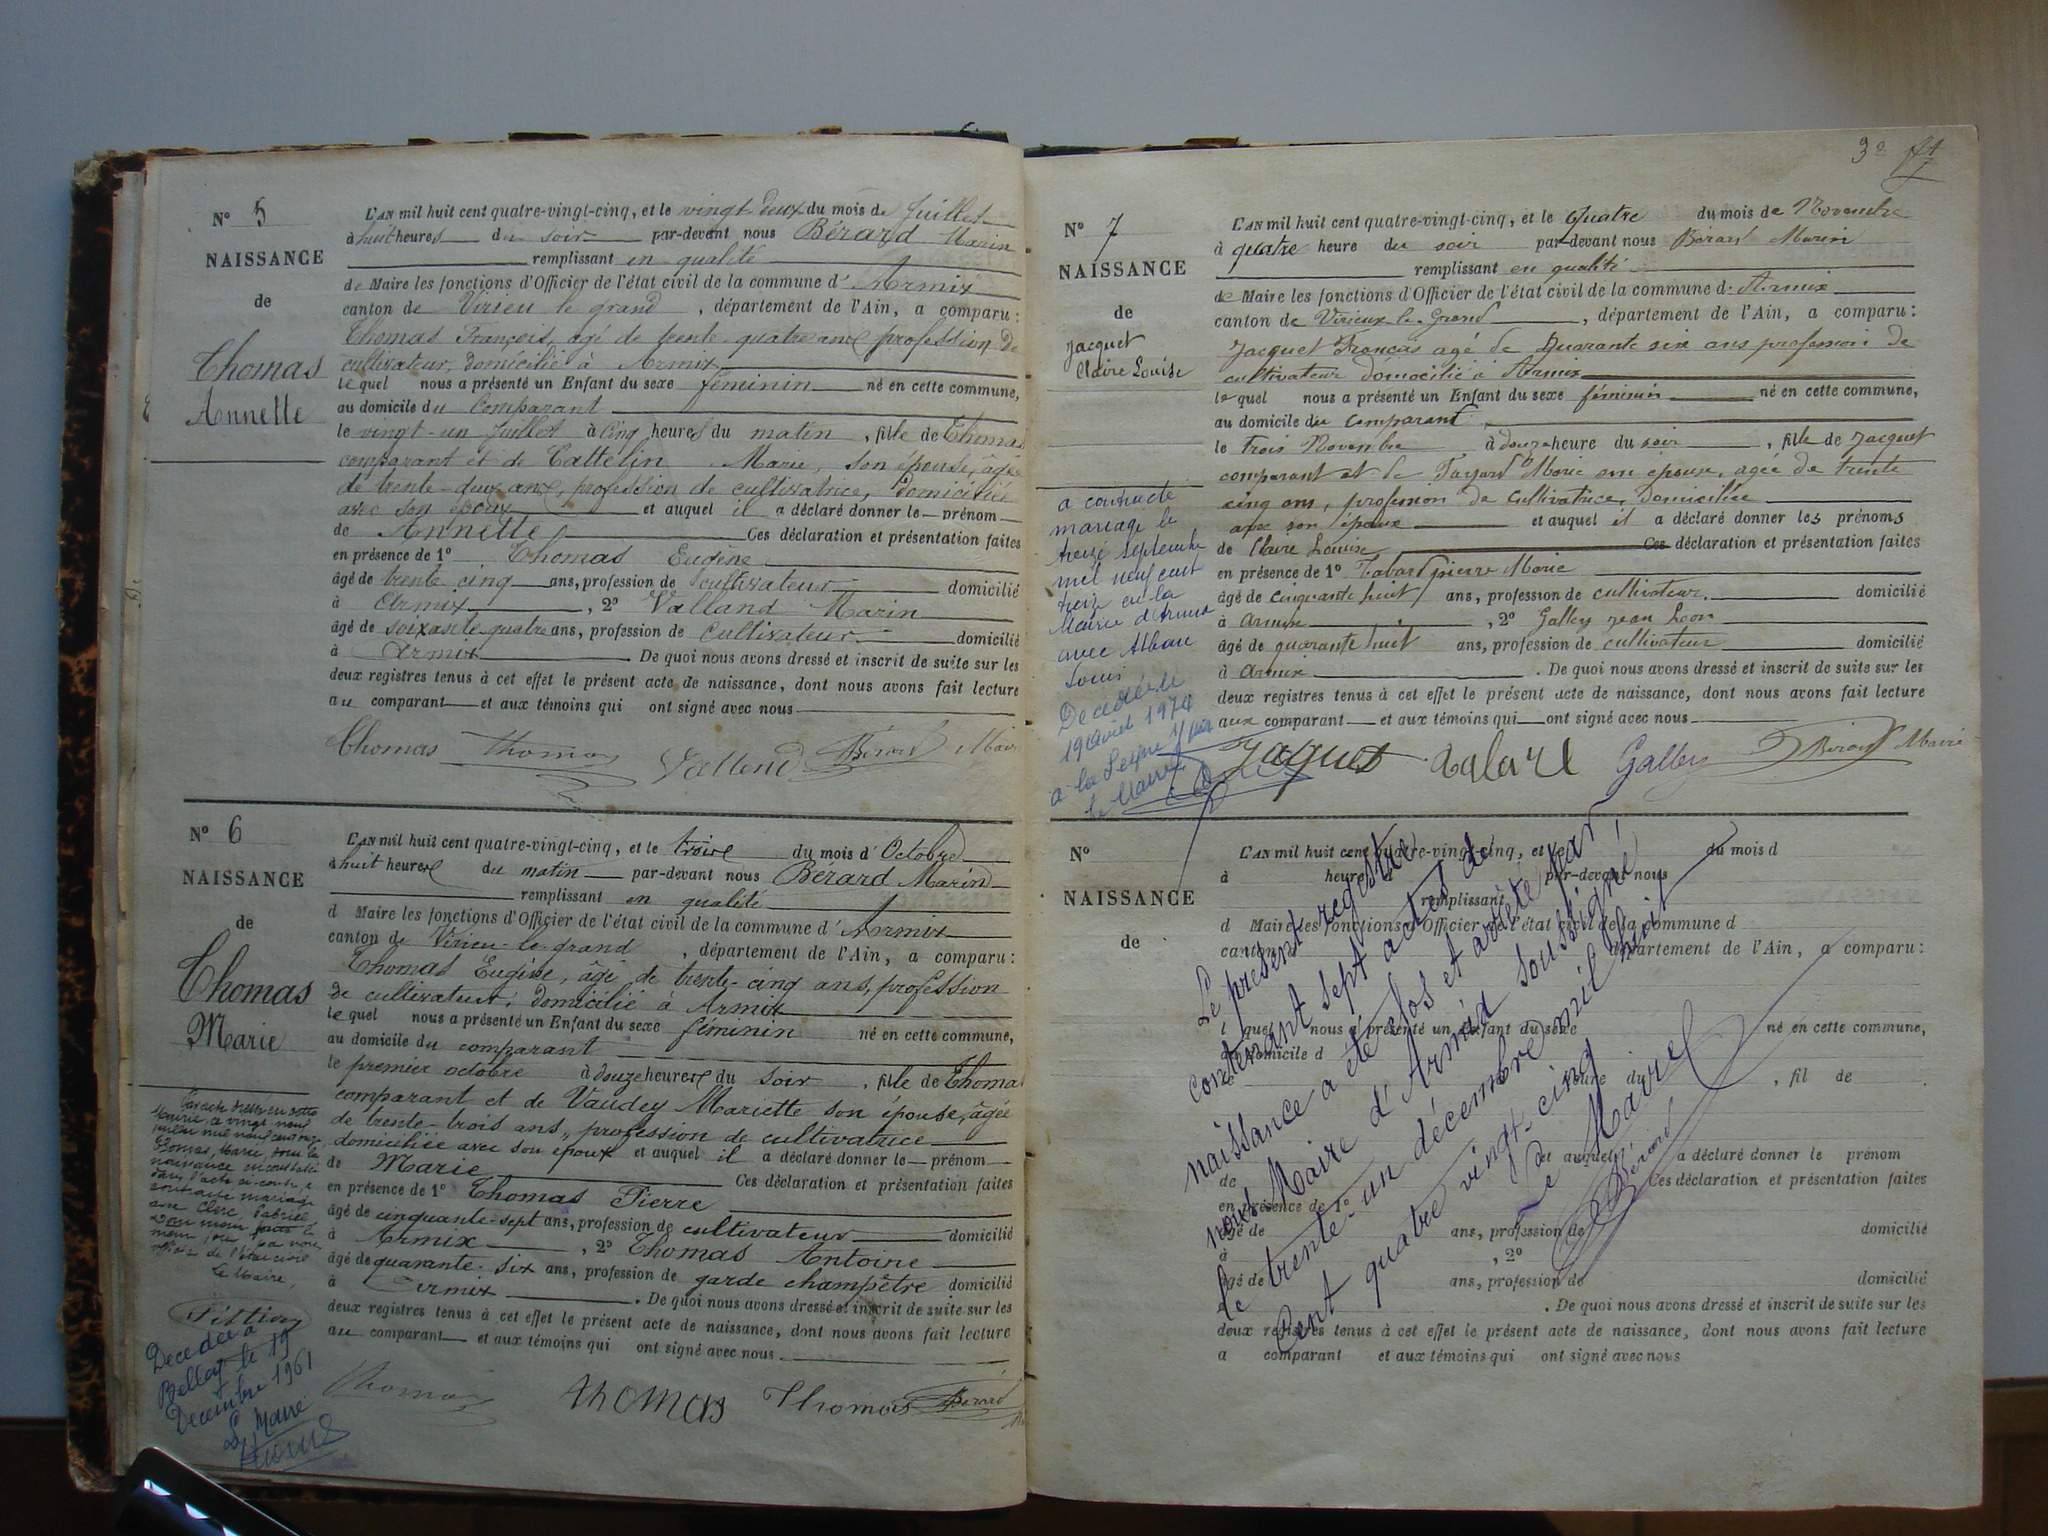 N° 5
NAISSANCE
de
Thomas
Annette
L'AN mil huit cent quatre-vingt-cinq, et le vingt-deux du mois de Juillet
à huit heures du soir par-devant nous Bérard Marin
remplissant en qualité
de Maire les fonctions d'Officier de l'état civil de la commune d' Armix
canton de Virieu le grand, département de l'Ain, a comparu:
Thomas François, agé de trente-quatre ans profession de
cultivateur, domicilié à Armix
lequel nous a présenté un Enfant du sexe féminin né en cette commune,
au domicile du Comparant
le vingt-un Juillet à cinq heures du matin, fille de Thomas
comparant et de Cattelin Marie, son épouse, âgée
de trente-deux ans, profession de cultivatrice, domiciliée
avec son époux et auquel il a déclaré donner le prénom
de Annette Ces déclaration et présentation faites
en présence de 1° Thomas Eugène
âgé de trente cinq ans, profession de cultivateur domicilié
à Armix, 2° Valland Marin
âgé de soixante quatre ans, profession de Cultivateur domicilié
à Armix De quoi nous avons dressé et inscrit de suite sur les
deux registres tenus à cet effet le présent acte de naissance, dont nous avons fait lecture
au comparant et aux témoins qui ont signé avec nous
Thomas thomas Valland Bérard Maire
N° 6
NAISSANCE
de
Thomas
Marie
L'AN mil huit cent quatre-vingt-cinq, et le trois du mois d' Octobre
à huit heures du matin par-devant nous Bérard Marin
remplissant en qualité
d Maire les fonctions d'Officier de l'état civil de la commune d' Armix
canton de Virieu-le-grand, département de l'Ain, a comparu:
Thomas Eugène, âgé de trente-cinq ans, profession
de cultivateur, domicilié à Armix
lequel nous a présenté un Enfant du sexe féminin né en cette commune,
au domicile du comparant
le premier octobre à douze heures du soir, fille de Thomas
comparant et de Vaudey Mariette son épouse, âgée
de trente-trois ans, profession de cultivatrice
domiciliée avec son époux et auquel il a déclaré donner le prénom
de Marie Ces déclaration et présentation faites
en présence de 1° Thomas Pierre
âgé de cinquante-sept ans, profession de cultivateur domicilié
à Armix, 2° Thomas Antoine
âgé de quarante-six ans, profession de garde champêtre domicilié
à Armix. De quoi nous avons dressé et inscrit de suite sur les
deux registres tenus à cet effet le présent acte de naissance, dont nous avons fait lecture
au comparant et aux témoins qui ont signé avec nous
Thomas thomas Thomas Bérard
Par acte dressé en cette
Mairie, le vingt neuf
Thomas, Marie, dont la
naissance est constatée
dans l'acte ci-contre, a
contracté mariage
avec Clerc,
de l'état civil
Le Maire,
Decedée à
Belley le 19
Decembre 1961
Le Maire
3e
N° 7
NAISSANCE
de
Jacquet
Claire Louise
L'AN mil huit cent quatre-vingt-cinq, et le quatre du mois de Novembre
à quatre heure du soir par-devant nous Bérard Marin
remplissant en qualité
de Maire les fonctions d'Officier de l'état civil de la commune d. Armix
canton de Virieux-le-Grand, département de l'Ain, a comparu:
Jacquet Francois agé de quarante six ans profession de
cultivateur domicilié à Armix
lequel nous a présenté un Enfant du sexe féminin né en cette commune,
au domicile du comparant
le trois Novembre à douze heure du soir, fille de Jacquet
comparant et de Marie son épouse, agée de trente
cinq ans, profession de cultivatrice, domiciliée
avec son époux et auquel il a déclaré donner les prénoms
de Claire Louise Ces déclaration et présentation faites
en présence de 1° Tabard pierre Marie
âgé de cinquante huit ans, profession de cultivateur. domicilié
à Armix, 2° Galley jean Leon
âgé de quarante huit ans, profession de cultivateur domicilié
à Armix. De quoi nous avons dressé et inscrit de suite sur les
deux registres tenus à cet effet le présent acte de naissance, dont nous avons fait lecture
aux comparant et aux témoins qui ont signé avec nous
Jaquet Galley Bérard Maire
a contracté
mariage le
treize septembre
mil neuf cent
treize en la
Mairie d'Armix
avec
Louis
Decedée le
19 avril 1974
à la Seyne s/ mer
le Maire
N°
NAISSANCE
de
L'AN mil huit cent quatre-vingt-cinq, et le du mois d
à heure par-devant nous
remplissant
d Maire les fonctions d'Officier de l'état civil de la commune d
canton d département de l'Ain, a comparu:
l quel nous a présenté un Enfant du sexe né en cette commune,
au domicile d
le heure du, fil de
et auquel a déclaré donner le prénom
de Ces déclaration et présentation faites
en présence de 1°
âgé de ans, profession de domicilié
à, 2°
âgé de ans, profession de domicilié
à. De quoi nous avons dressé et inscrit de suite sur les
deux registres tenus à cet effet le présent acte de naissance, dont nous avons fait lecture
a comparant et aux témoins qui ont signé avec nous
Le présent registre
contenant sept actes de
naissance a été clos et arrêté par,
nous Maire d'Armix soussigné
le trente-un décembre mil huit
Cent quatre vingt-cinq
Le Maire
Bérard